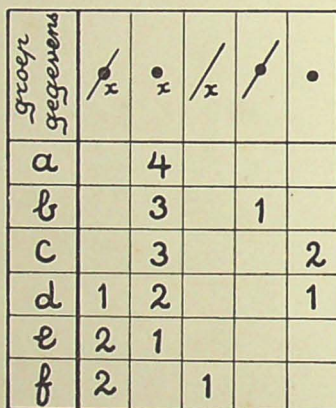 groep
gegevens
x x x
a 4
b 3 1
c 3 2
d 1 2 1
e 2 1
f 2 1